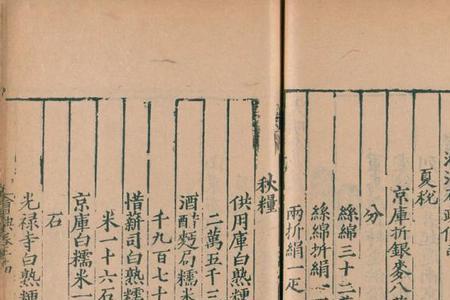 夏稅
京庫折銀麥八
分
絲綿三十二
絲綿折絹
兩折絹一疋
秋糧
供用庫白熟糯
二萬五千三
酒醋麵局糯米
千九百七十
惜薪司白熟糯
米一十六石
京庫白糯米一
石
光禄寺白熟糯